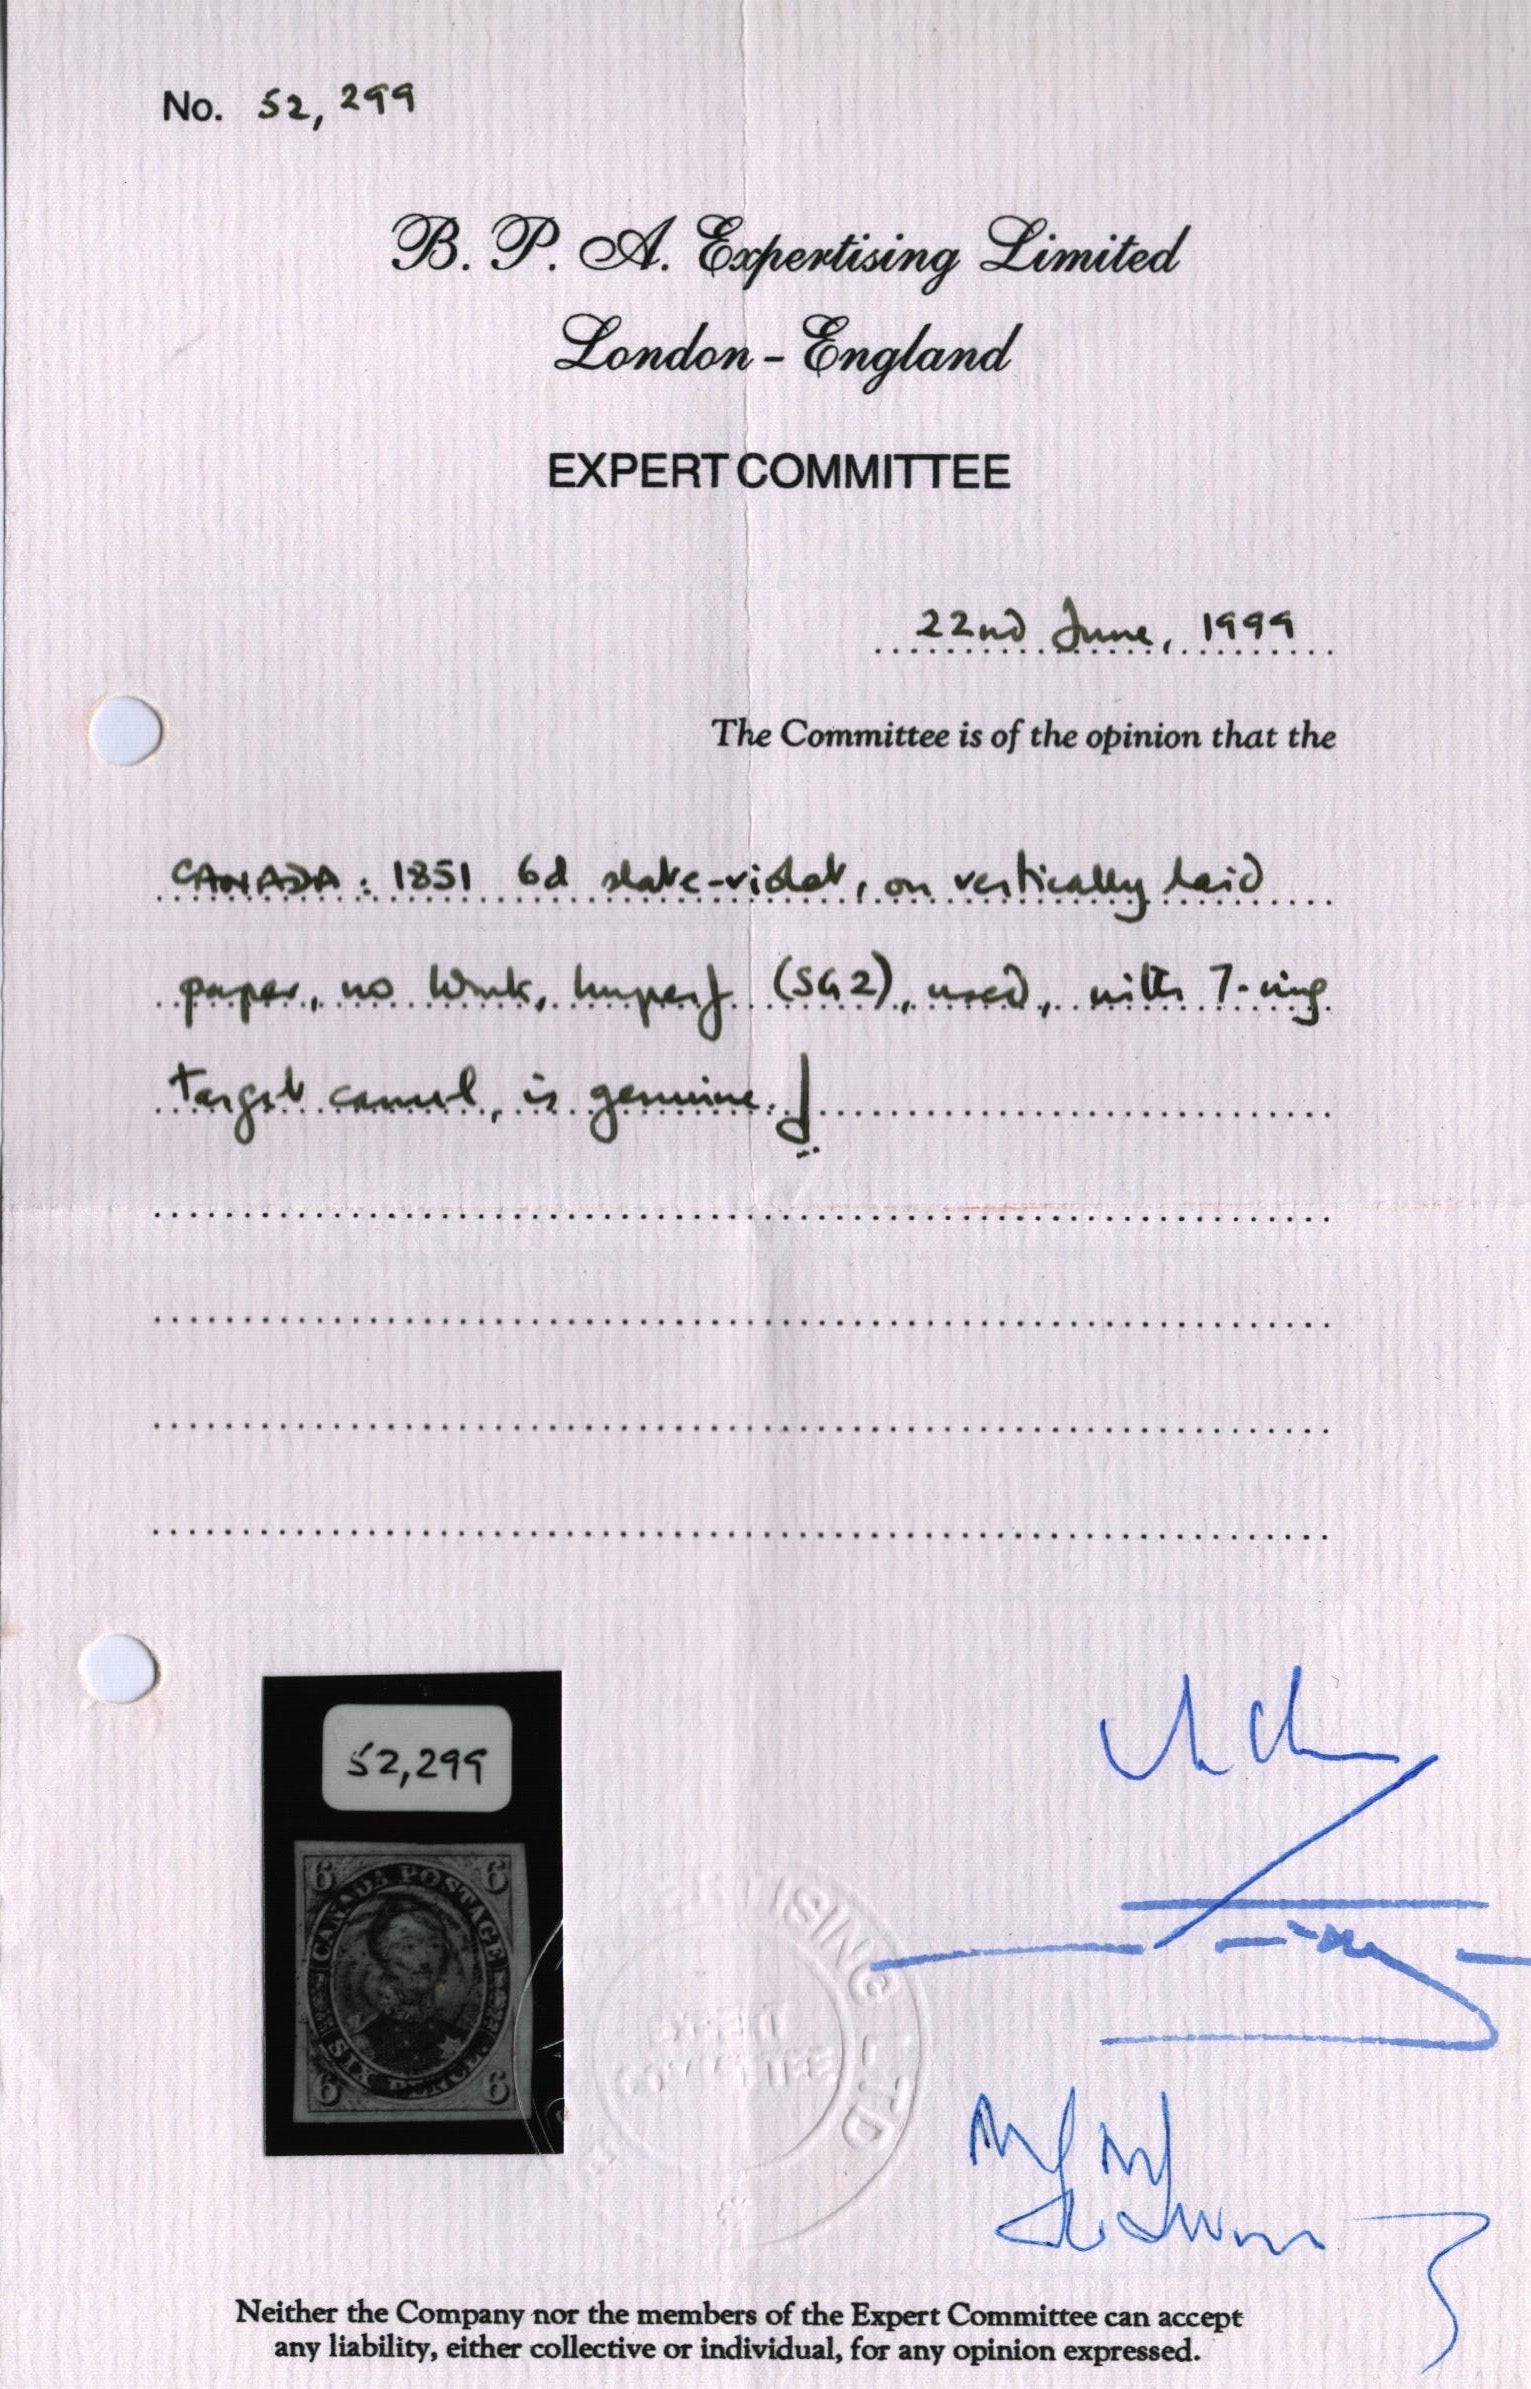 No. 52,299
B. P. A. Expertising Limited
London - England
EXPERT COMMITTEE
22nd June, 1999
The Committee is of the opinion that the
CANADA: 1851 6d slate-violet, on vertically laid
paper, no wmk, imperf (SG2), used, with 7-ring
target cancel, is genuine.
52,299
6 6
CANADA POSTAGE
SIX PENCE
6 6
EXPERTISING LTD
EXPERT
COMMITTEE
Neither the Company nor the members of the Expert Committee can accept
any liability, either collective or individual, for any opinion expressed.